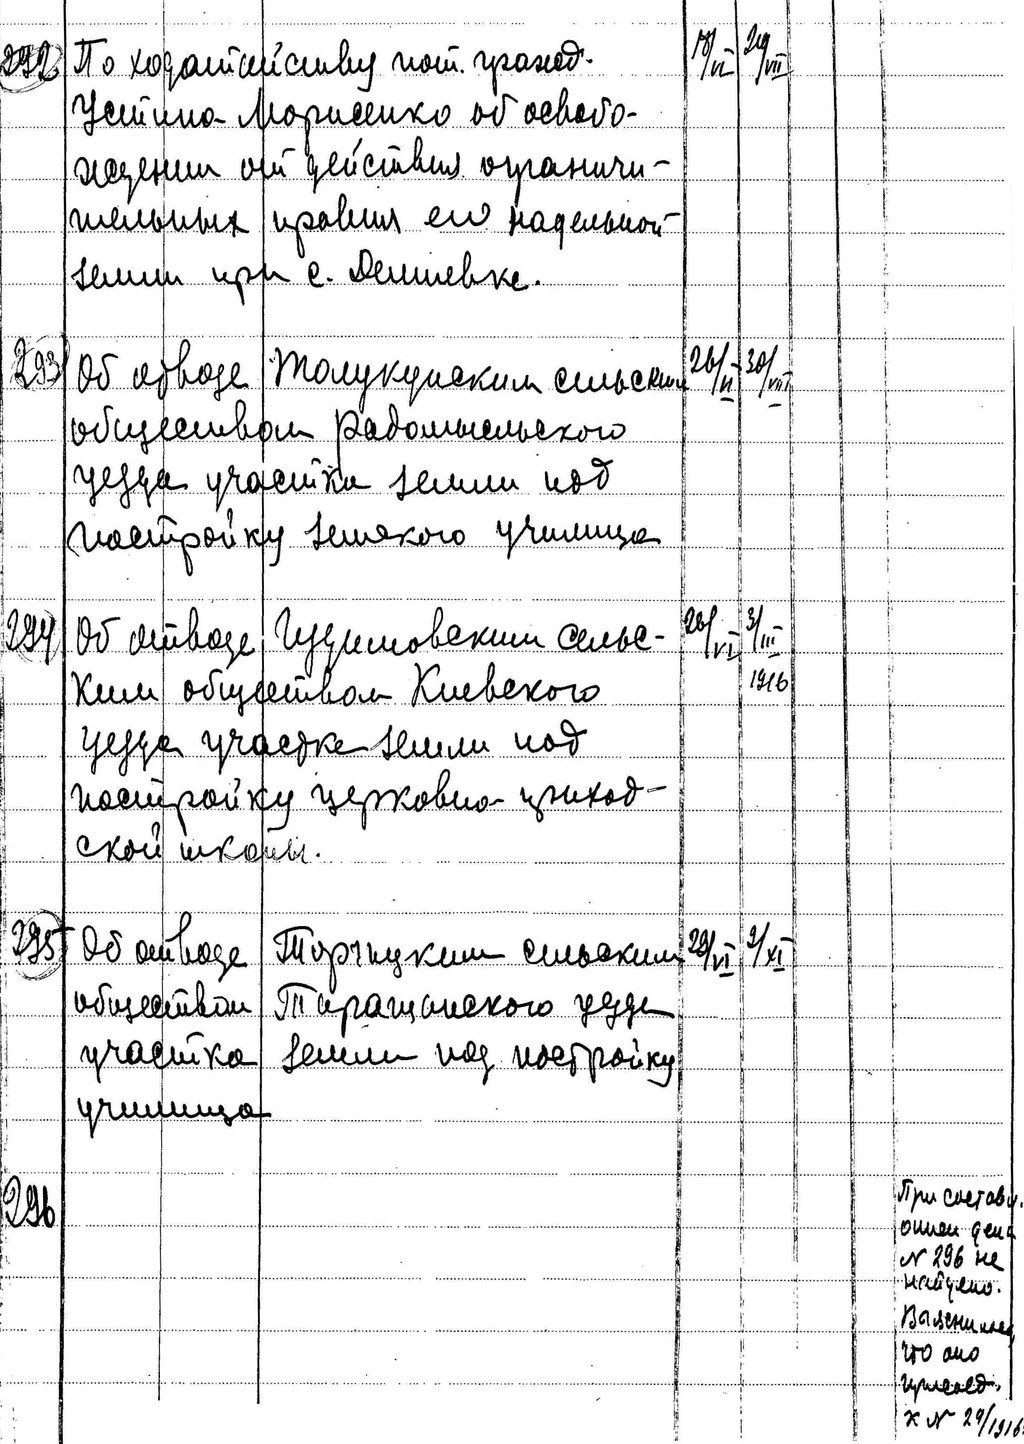 292 По ходатайству пот. гражд. 18/VI 24/VII
Устина Мориченко об освобо-
ждении от действия ограничи-
тельных правил его надельной
земли при с. Демиевке.
293 Об отводе Толукунским сельским 26/VI 30/VIII
обществом Радомысльского
уезда участка земли под
постройку земского училища
294 Об отводе Гудимовским сельс- 26/VI 3/III
ким обществом Киевского 1916
уезда участка земли под
постройку церковно-приход-
ской школы.
295 Об отводе Торчицким сельским 29/VI 9/XI
обществом Таращанского уезда
участка земли под постройку
училища
296
При составл.
описи дела
N 296 не
найдено.
Выяснилось,
что оно
присоед.
к N 29/1916